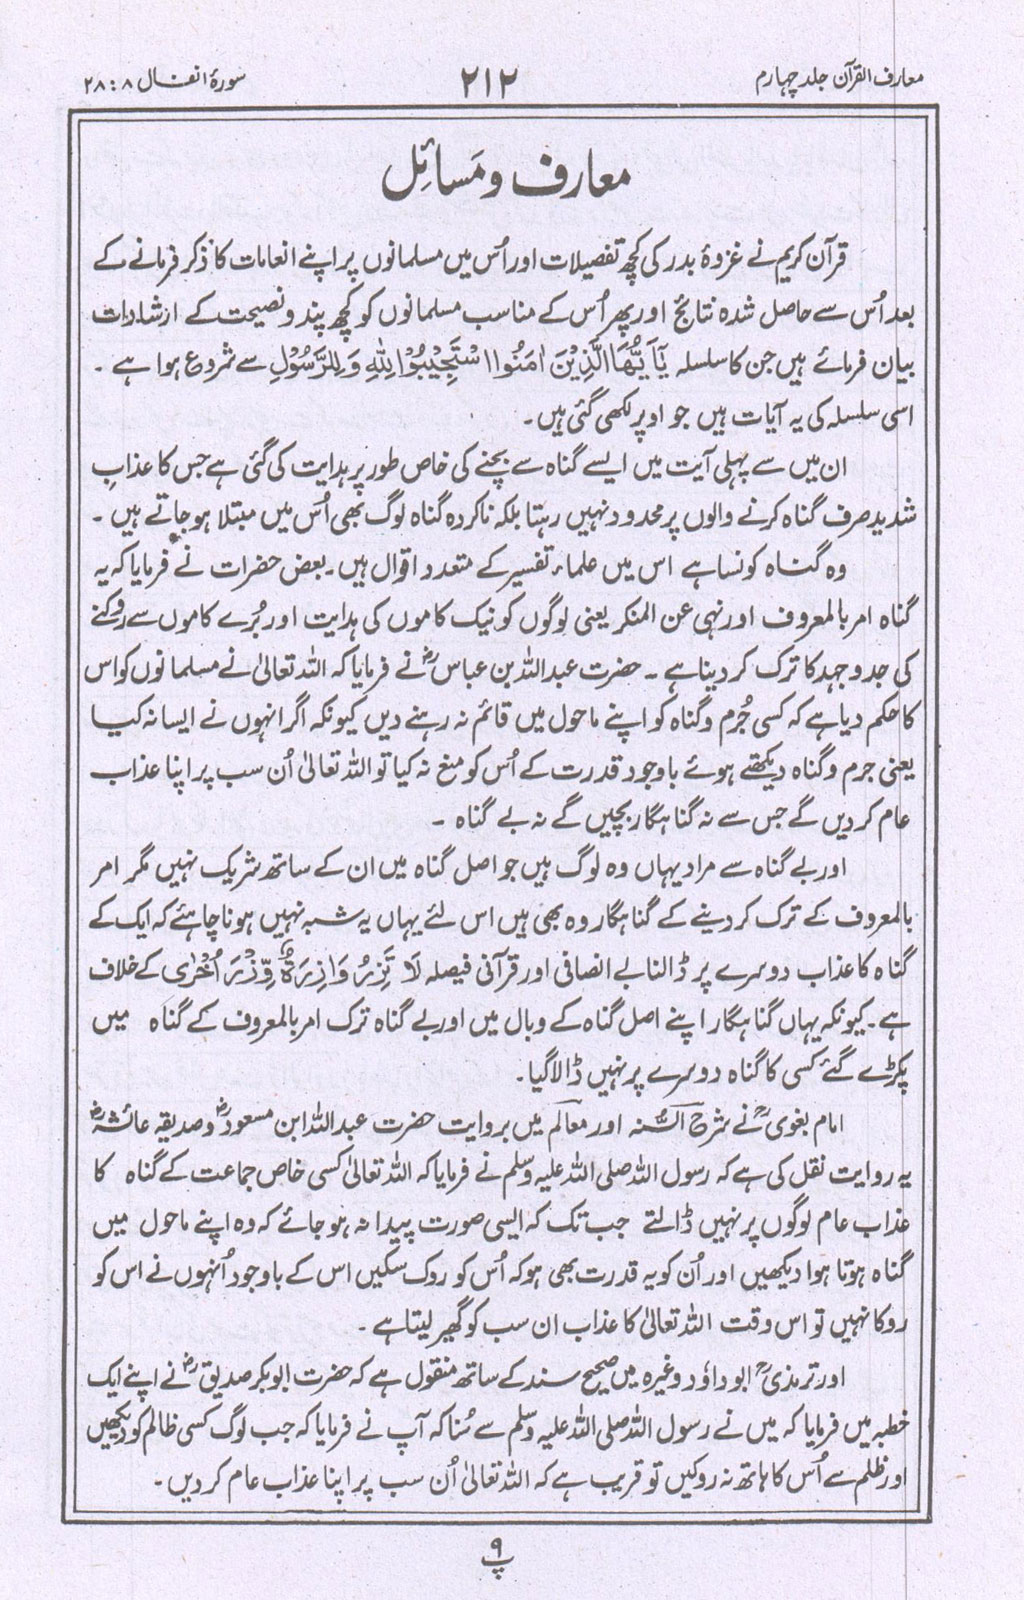 معارف القرآن جلد چہارم
۲۱۲
سورۂ انفال ۸ : ۲۸
معارف و مَسائِل
قرآن کریم نے غزوۂ بدر کی کچھ تفصیلات اور اُس میں مسلمانوں پر اپنے انعامات کا ذکر فرمانے کے
بعد اُس سے حاصل شدہ نتائج اور پھر اُس کے مناسب مسلمانوں کو کچھ پند و نصیحت کے ارشادات
بیان فرمائے ہیں جن کا سلسلہ يٰٓاَيُّهَا الَّذِيْنَ اٰمَنُوا اسْتَجِيْبُوْا لِلّٰهِ وَلِلرَّسُوْلِ سے شروع ہوا ہے ۔
اسی سلسلہ کی یہ آیات ہیں جو اوپر لکھی گئی ہیں۔
ان میں سے پہلی آیت میں ایسے گناہ سے بچنے کی خاص طور پر ہدایت کی گئی ہے جس کا عذابِ
شدید صرف گناہ کرنے والوں پر محدود نہیں رہتا بلکہ ناکردہ گناہ لوگ بھی اُس میں مبتلا ہو جاتے ہیں ۔
وہ گناہ کونسا ہے اس میں علماء تفسیر کے متعدد اقوال ہیں۔ بعض حضرات نے فرمایا کہ یہ
گناہ امر بالمعروف اور نہی عن المنکر یعنی لوگوں کو نیک کاموں کی ہدایت اور بُرے کاموں سے روکنے
کی جدوجہد کا ترک کر دینا ہے ۔ حضرت عبد اللہ بن عباسؓ نے فرمایا کہ اللہ تعالیٰ نے مسلمانوں کو اس
کا حکم دیا ہے کہ کسی جُرم و گناہ کو اپنے ماحول میں قائم نہ رہنے دیں کیونکہ اگر انہوں نے ایسا نہ کیا
یعنی جرم و گناہ دیکھتے ہوئے باوجود قدرت کے اُس کو منع نہ کیا تو اللہ تعالیٰ اُن سب پر اپنا عذاب
عام کر دیں گے جس سے نہ گناہگار بچیں گے نہ بے گناہ ۔
اور بے گناہ سے مراد یہاں وہ لوگ ہیں جو اصل گناہ میں ان کے ساتھ شریک نہیں مگر امر
بالمعروف کے ترک کر دینے کے گناہگار وہ بھی ہیں اس لئے یہاں یہ شبہ نہیں ہونا چاہئے کہ ایک کے
گناہ کا عذاب دوسرے پر ڈالنا بے انصافی اور قرآنی فیصلہ لَا تَزِرُ وَازِرَةٌ وِّزْرَ اُخْرٰى کے خلاف
ہے۔ کیونکہ یہاں گناہگار اپنے اصل گناہ کے وبال میں اور بے گناہ ترک امر بالمعروف کے گناہ میں
پکڑے گئے کسی کا گناہ دوسرے پر نہیں ڈالا گیا۔
امام بغویؒ نے شرح السُّنہ اور معالم میں بروایت حضرت عبد اللہ ابن مسعودؓ و صدیقہ عائشہؓ
یہ روایت نقل کی ہے کہ رسول اللہ صلی اللہ علیہ وسلم نے فرمایا کہ اللہ تعالیٰ کسی خاص جماعت کے گناہ کا
عذاب عام لوگوں پر نہیں ڈالتے جب تک کہ ایسی صورت پیدا نہ ہو جائے کہ وہ اپنے ماحول میں
گناہ ہوتا ہوا دیکھیں اور اُن کو یہ قدرت بھی ہو کہ اُس کو روک سکیں اس کے باوجود اُنہوں نے اس کو
روکا نہیں تو اس وقت اللہ تعالیٰ کا عذاب ان سب کو گھیر لیتا ہے ۔
اور ترمذیؒ ابو داؤد وغیرہ میں صحیح سند کے ساتھ منقول ہے کہ حضرت ابو بکر صدیقؓ نے اپنے ایک
خطبہ میں فرمایا کہ میں نے رسول اللہ صلی اللہ علیہ وسلم سے سُنا کہ آپ نے فرمایا کہ جب لوگ کسی ظالم کو دیکھیں
اور ظلم سے اُس کا ہاتھ نہ روکیں تو قریب ہے کہ اللہ تعالیٰ اُن سب پر اپنا عذاب عام کر دیں ۔
پ ۹